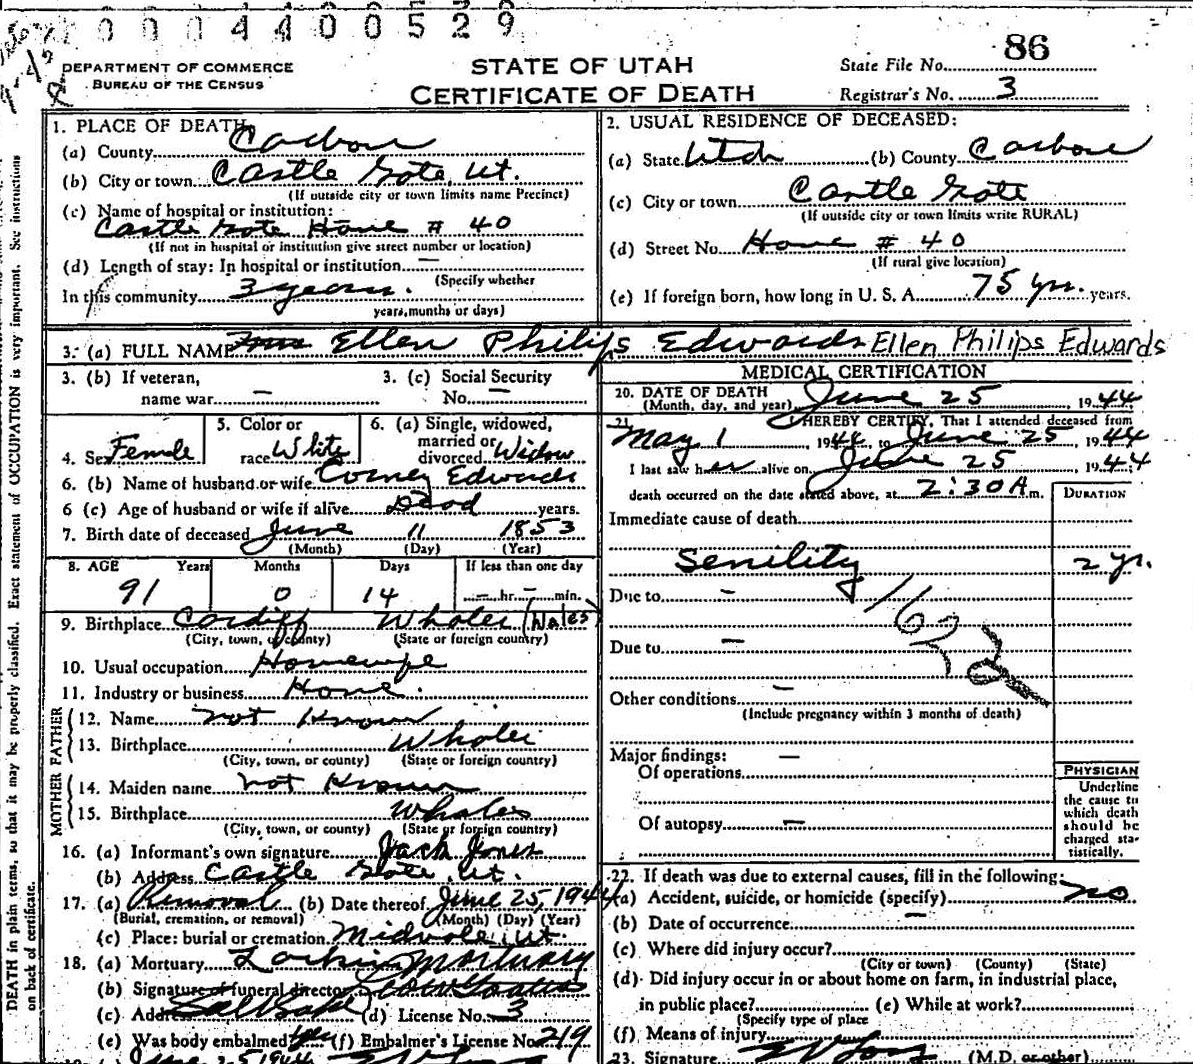 0 0 0 4 4 0 0 5 2 9
DEPARTMENT OF COMMERCE
BUREAU OF THE CENSUS
STATE OF UTAH
CERTIFICATE OF DEATH
State File No. 86
Registrar's No. 3
DEATH in plain terms, so that it may be properly classified. Exact statement of OCCUPATION is very important. See instructions
on back of certificate.
1. PLACE OF DEATH
(a) County Carbon
(b) City or town Castle Gate, Ut.
(If outside city or town limits name Precinct)
(c) Name of hospital or institution:
Castle Gate House # 40
(If not in hospital or institution give street number or location)
(d) Length of stay: In hospital or institution —
(Specify whether
In this community 3 years.
years, months or days)
2. USUAL RESIDENCE OF DECEASED:
(a) State Utah (b) County Carbon
(c) City or town Castle Gate
(If outside city or town limits write RURAL)
(d) Street No. House # 40
(If rural give location)
(e) If foreign born, how long in U. S. A. 75 yrs. years.
3. (a) FULL NAME Mrs Ellen Philips Edwards Ellen Philips Edwards
3. (b) If veteran,
name war —
3. (c) Social Security
No. —
4. Sex Female
5. Color or
race White
6. (a) Single, widowed,
married or
divorced Widow
6. (b) Name of husband or wife Edwards
6 (c) Age of husband or wife if alive Dead years.
7. Birth date of deceased June 11 1853
(Month) (Day) (Year)
8. AGE Years Months Days If less than one day
91 0 14 — hr. — min.
9. Birthplace Cardiff Whales (Wales)
(City, town, or county) (State or foreign country)
10. Usual occupation Housewife
11. Industry or business Home.
FATHER
12. Name not Known
13. Birthplace Whales
(City, town, or county) (State or foreign country)
MOTHER
14. Maiden name not Known
15. Birthplace Whales
(City, town, or county) (State or foreign country)
16. (a) Informant's own signature Jack Jones
(b) Address Castle Gate, Ut.
17. (a) Removal (b) Date thereof June 25, 1944
(Burial, cremation, or removal) (Month) (Day) (Year)
(c) Place: burial or cremation Midvale, Ut.
18. (a) Mortuary Larkin Mortuary
(b) Signature of funeral director
(c) Address Salt Lake (d) License No. 3
(e) Was body embalmed? Yes (f) Embalmer's License No. 219
June 25 1944
MEDICAL CERTIFICATION
20. DATE OF DEATH
(Month, day, and year) June 25, 1944
21. I HEREBY CERTIFY, That I attended deceased from
May 1 1944, to June 25, 1944
I last saw her alive on June 25, 1944
death occurred on the date stated above, at 2:30 A.m.
DURATION
Immediate cause of death
Senility 2 yr.
Due to —
162
Due to —
Other conditions —
(Include pregnancy within 3 months of death)
Major findings: —
Of operations
Of autopsy —
PHYSICIAN
Underline
the cause to
which death
should be
charged sta-
tistically.
22. If death was due to external causes, fill in the following:
(a) Accident, suicide, or homicide (specify) no
(b) Date of occurrence —
(c) Where did injury occur?
(City or town) (County) (State)
(d) Did injury occur in or about home on farm, in industrial place,
in public place? (e) While at work?
(Specify type of place
(f) Means of injury
23. Signature (M.D. or other)